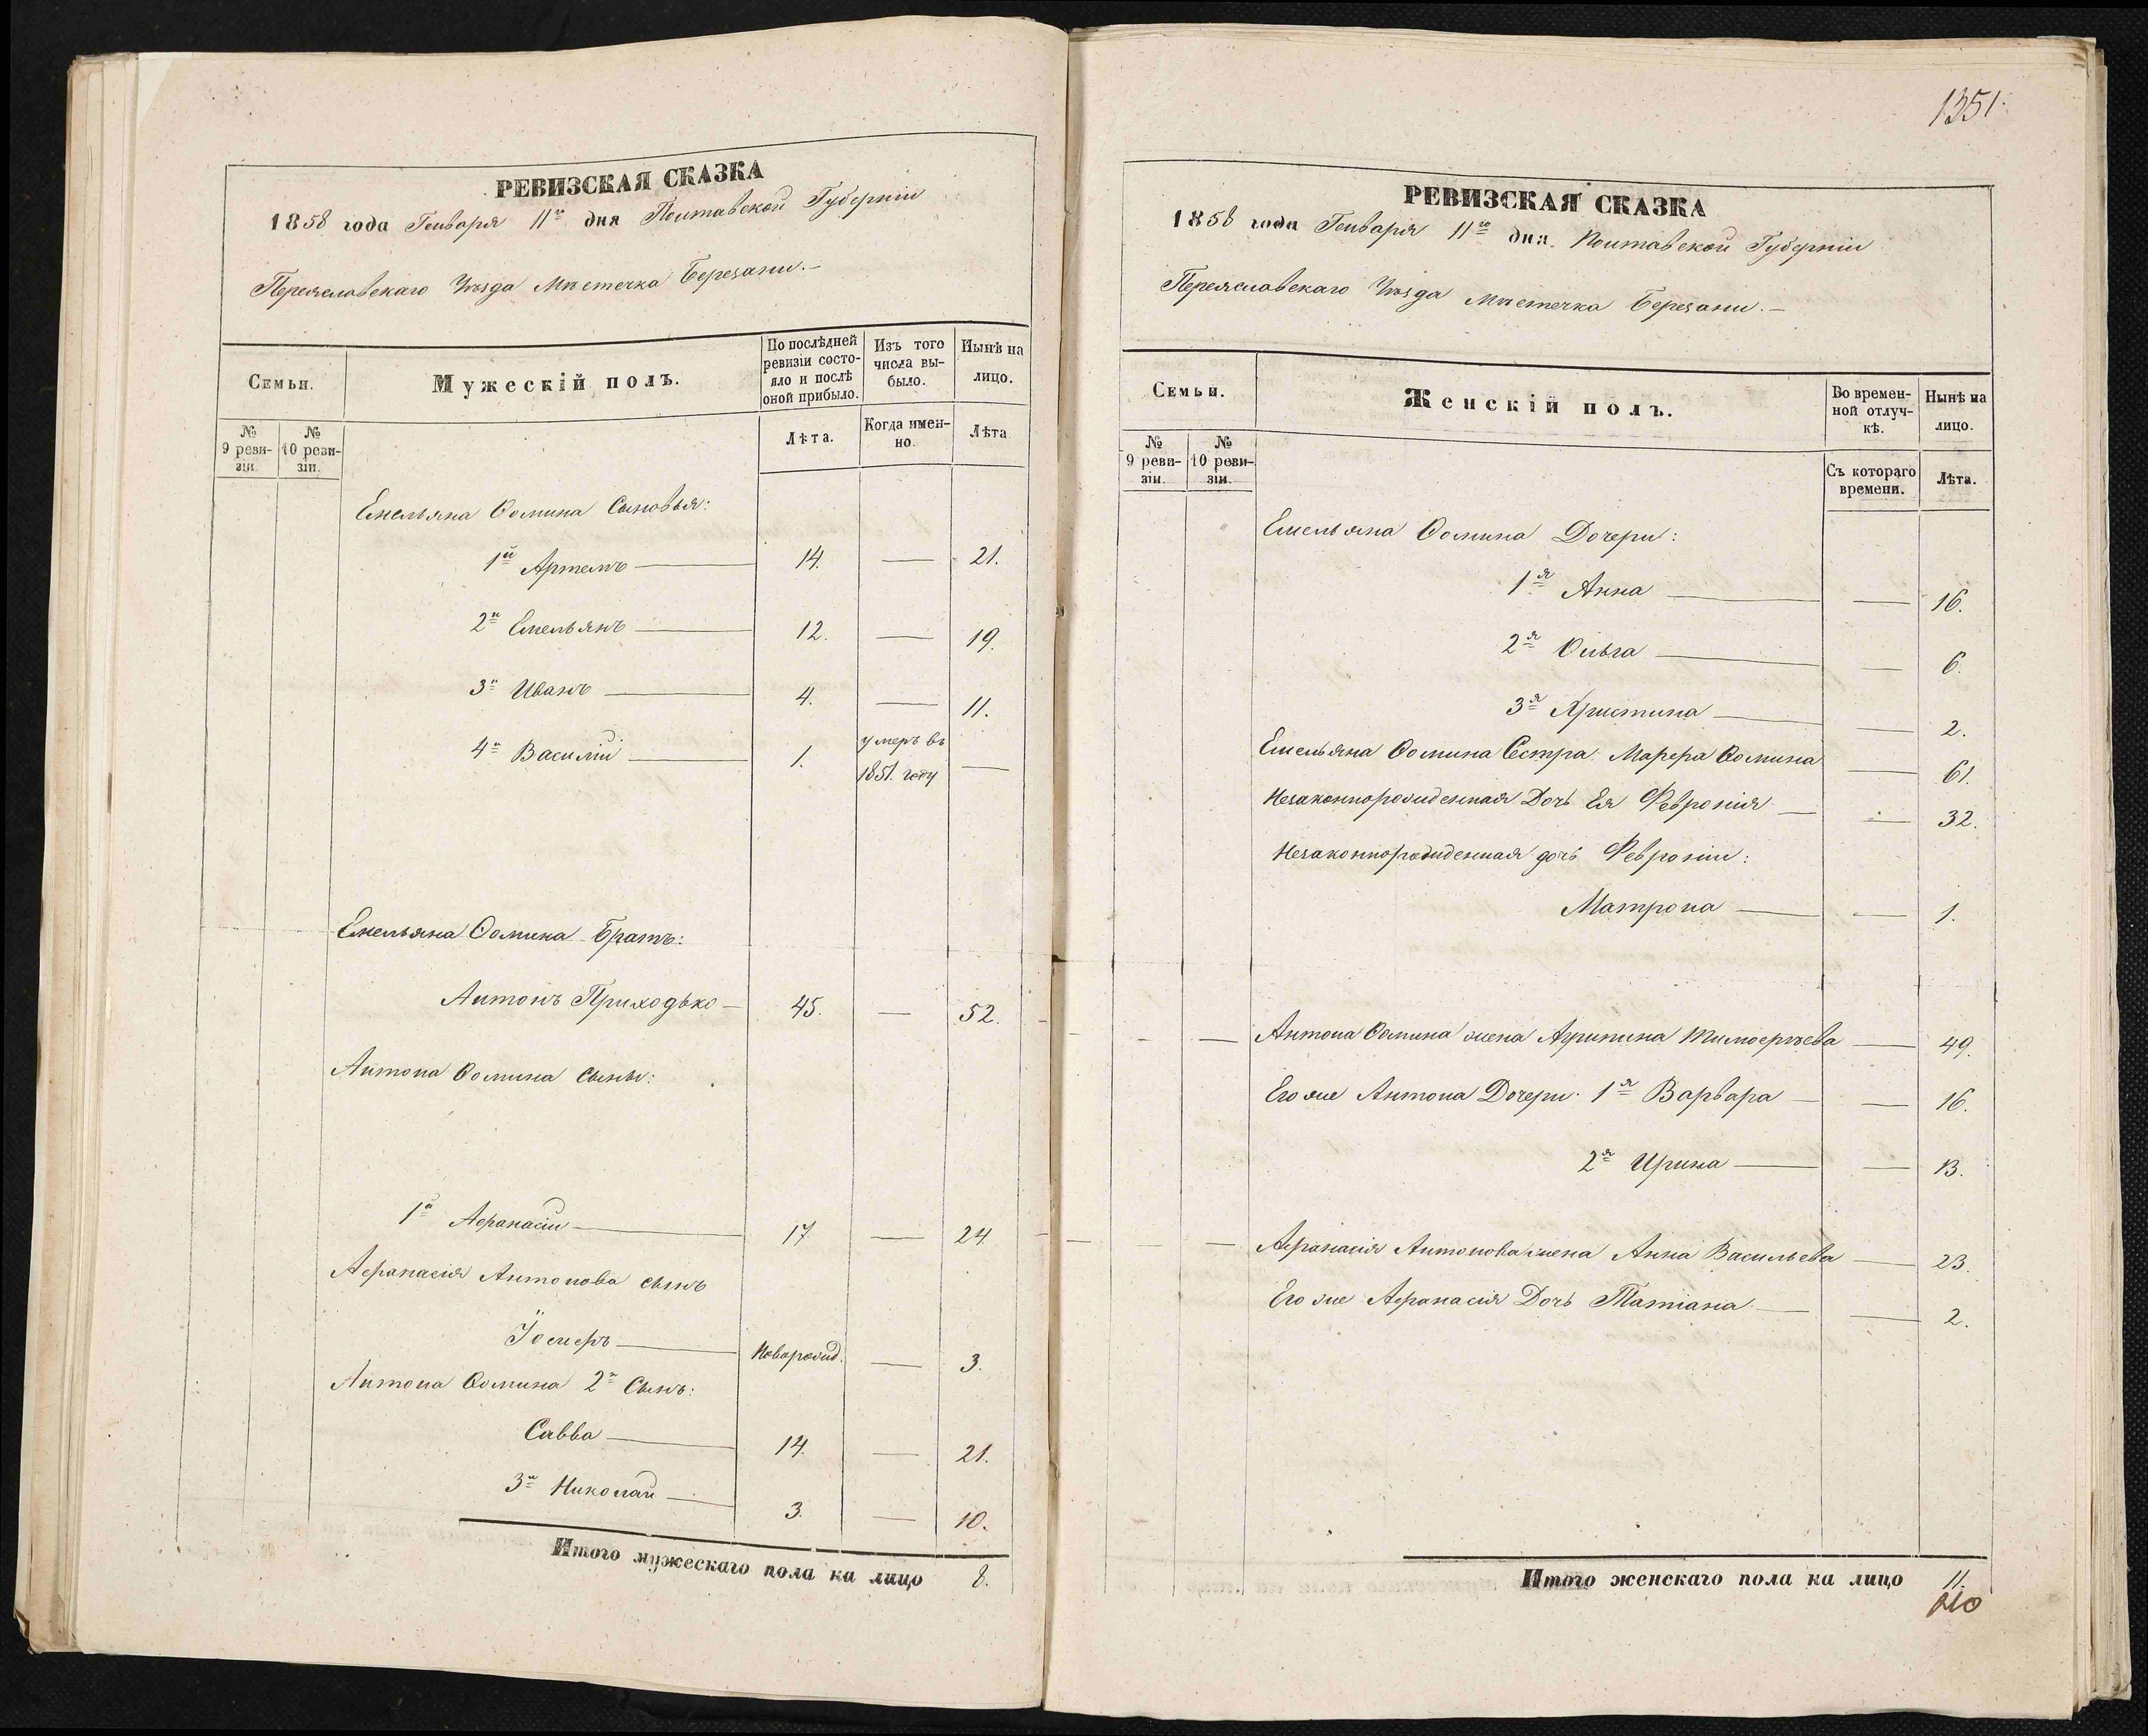 РЕВИЗСКАЯ СКАЗКА
1858 года Генваря 11го дня Полтавской Губерніи
Переяславскаго Уѣзда Мѣстечка Березани.—
Семьи.
Мужескій полъ.
По послѣдней ревизіи состояло и послѣ оной прибыло.
Изъ того числа выбыло.
Нынѣ на лицо.
№ 9 ревизіи.
№ 10 ревизіи.
Лѣта.
Когда именно.
Лѣта
Емельяна Ѳомина Сыновья:
1й Артемъ — 14. — 21.
2й Емельянъ — 12. — 19.
3й Иванъ — 4. — 11.
4й Василій — 1. умеръ въ 1851. году —
Емельяна Ѳомина Братъ:
Антонъ Приходько — 45. — 52.
Антона Ѳомина Сыны:
1й Аѳанасій — 17 — 24
Аѳанасія Антонова сынъ
Іосифъ — Новорожд. — 3.
Антона Ѳомина 2й Сынъ:
Савва — 14. — 21.
3й Николай — 3. — 10.
Итого мужескаго пола на лицо 8.
1351.
РЕВИЗСКАЯ СКАЗКА
1858 года Генваря 11го дня. Полтавской Губерніи
Переяславскаго Уѣзда Мѣстечка Березани.—
Семьи.
Женскій полъ.
Во временной отлучкѣ.
Нынѣ на лицо.
№ 9 ревизіи.
№ 10 ревизіи.
Съ котораго времени.
Лѣта.
Емельяна Ѳомина Дочери:
1я Анна — — 16.
2я Ольга — — 6.
3я Христина — — 2.
Емельяна Ѳомина Сестра Марфа Ѳомина — 61.
Незаконнорожденная Дочь Ея Февронія — — 32.
Незаконнорожденная дочь Февроніи:
Матрона — — 1.
Антона Ѳомина жена Агрипина Тимофеева — 49.
Его же Антона Дочери: 1я Варвара — — 16.
2я Ирина — — 13.
Аѳанасія Антонова жена Анна Васильева — 23.
Его же Аѳанасія Дочь Татіана — — 2.
Итого женскаго пола на лицо 11.